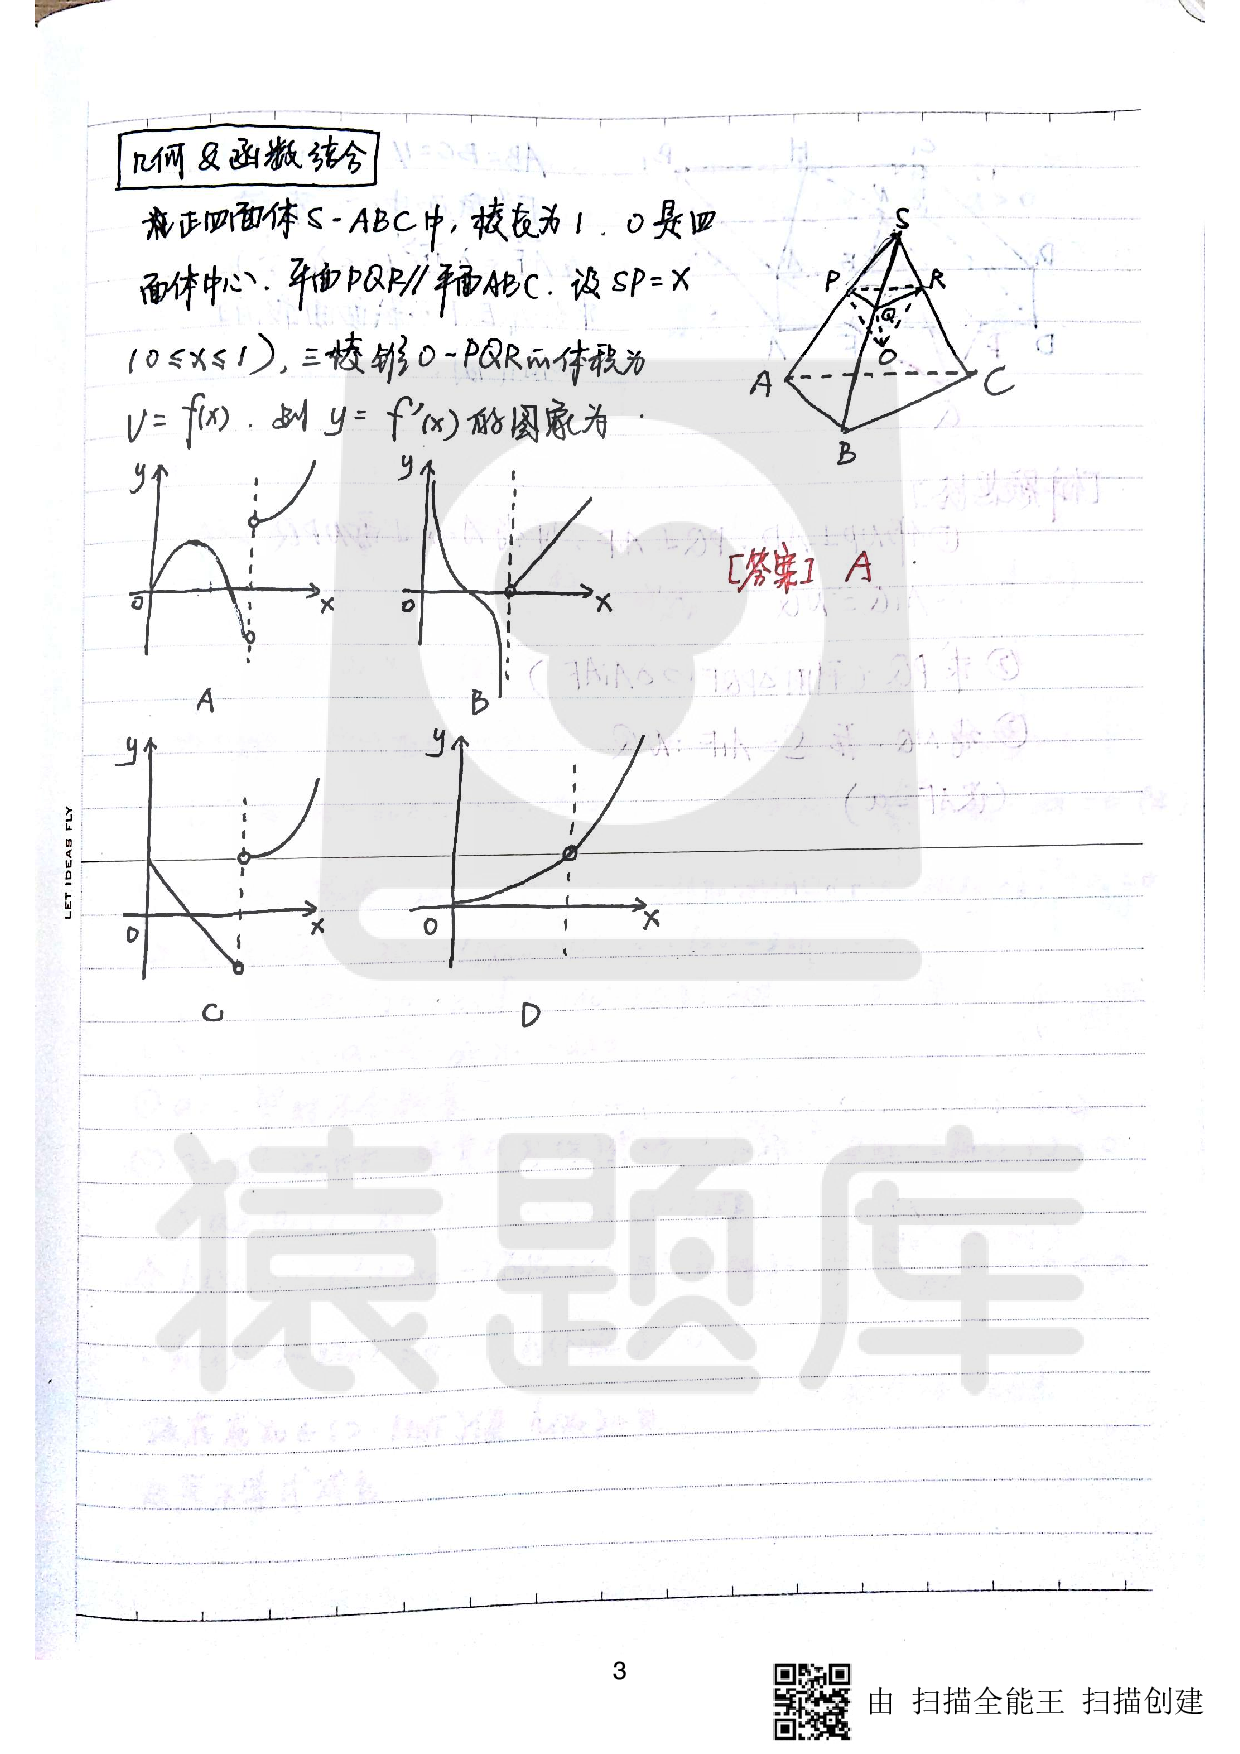 几何&函数结合
在正四面体S-ABC中,棱长为1.O是四
面体中心.平面PQR//平面ABC.设SP=x
(0≤x≤1),三棱锥O-PQR的体积为
V=f(x).则y=f'(x)的图象为.
S
P
R
Q
O
A
C
B
y
O
x
A
y
O
x
B
[答案] A
y
O
x
C
y
O
x
D
LET IDEAS FLY
猿题库
3
由 扫描全能王 扫描创建